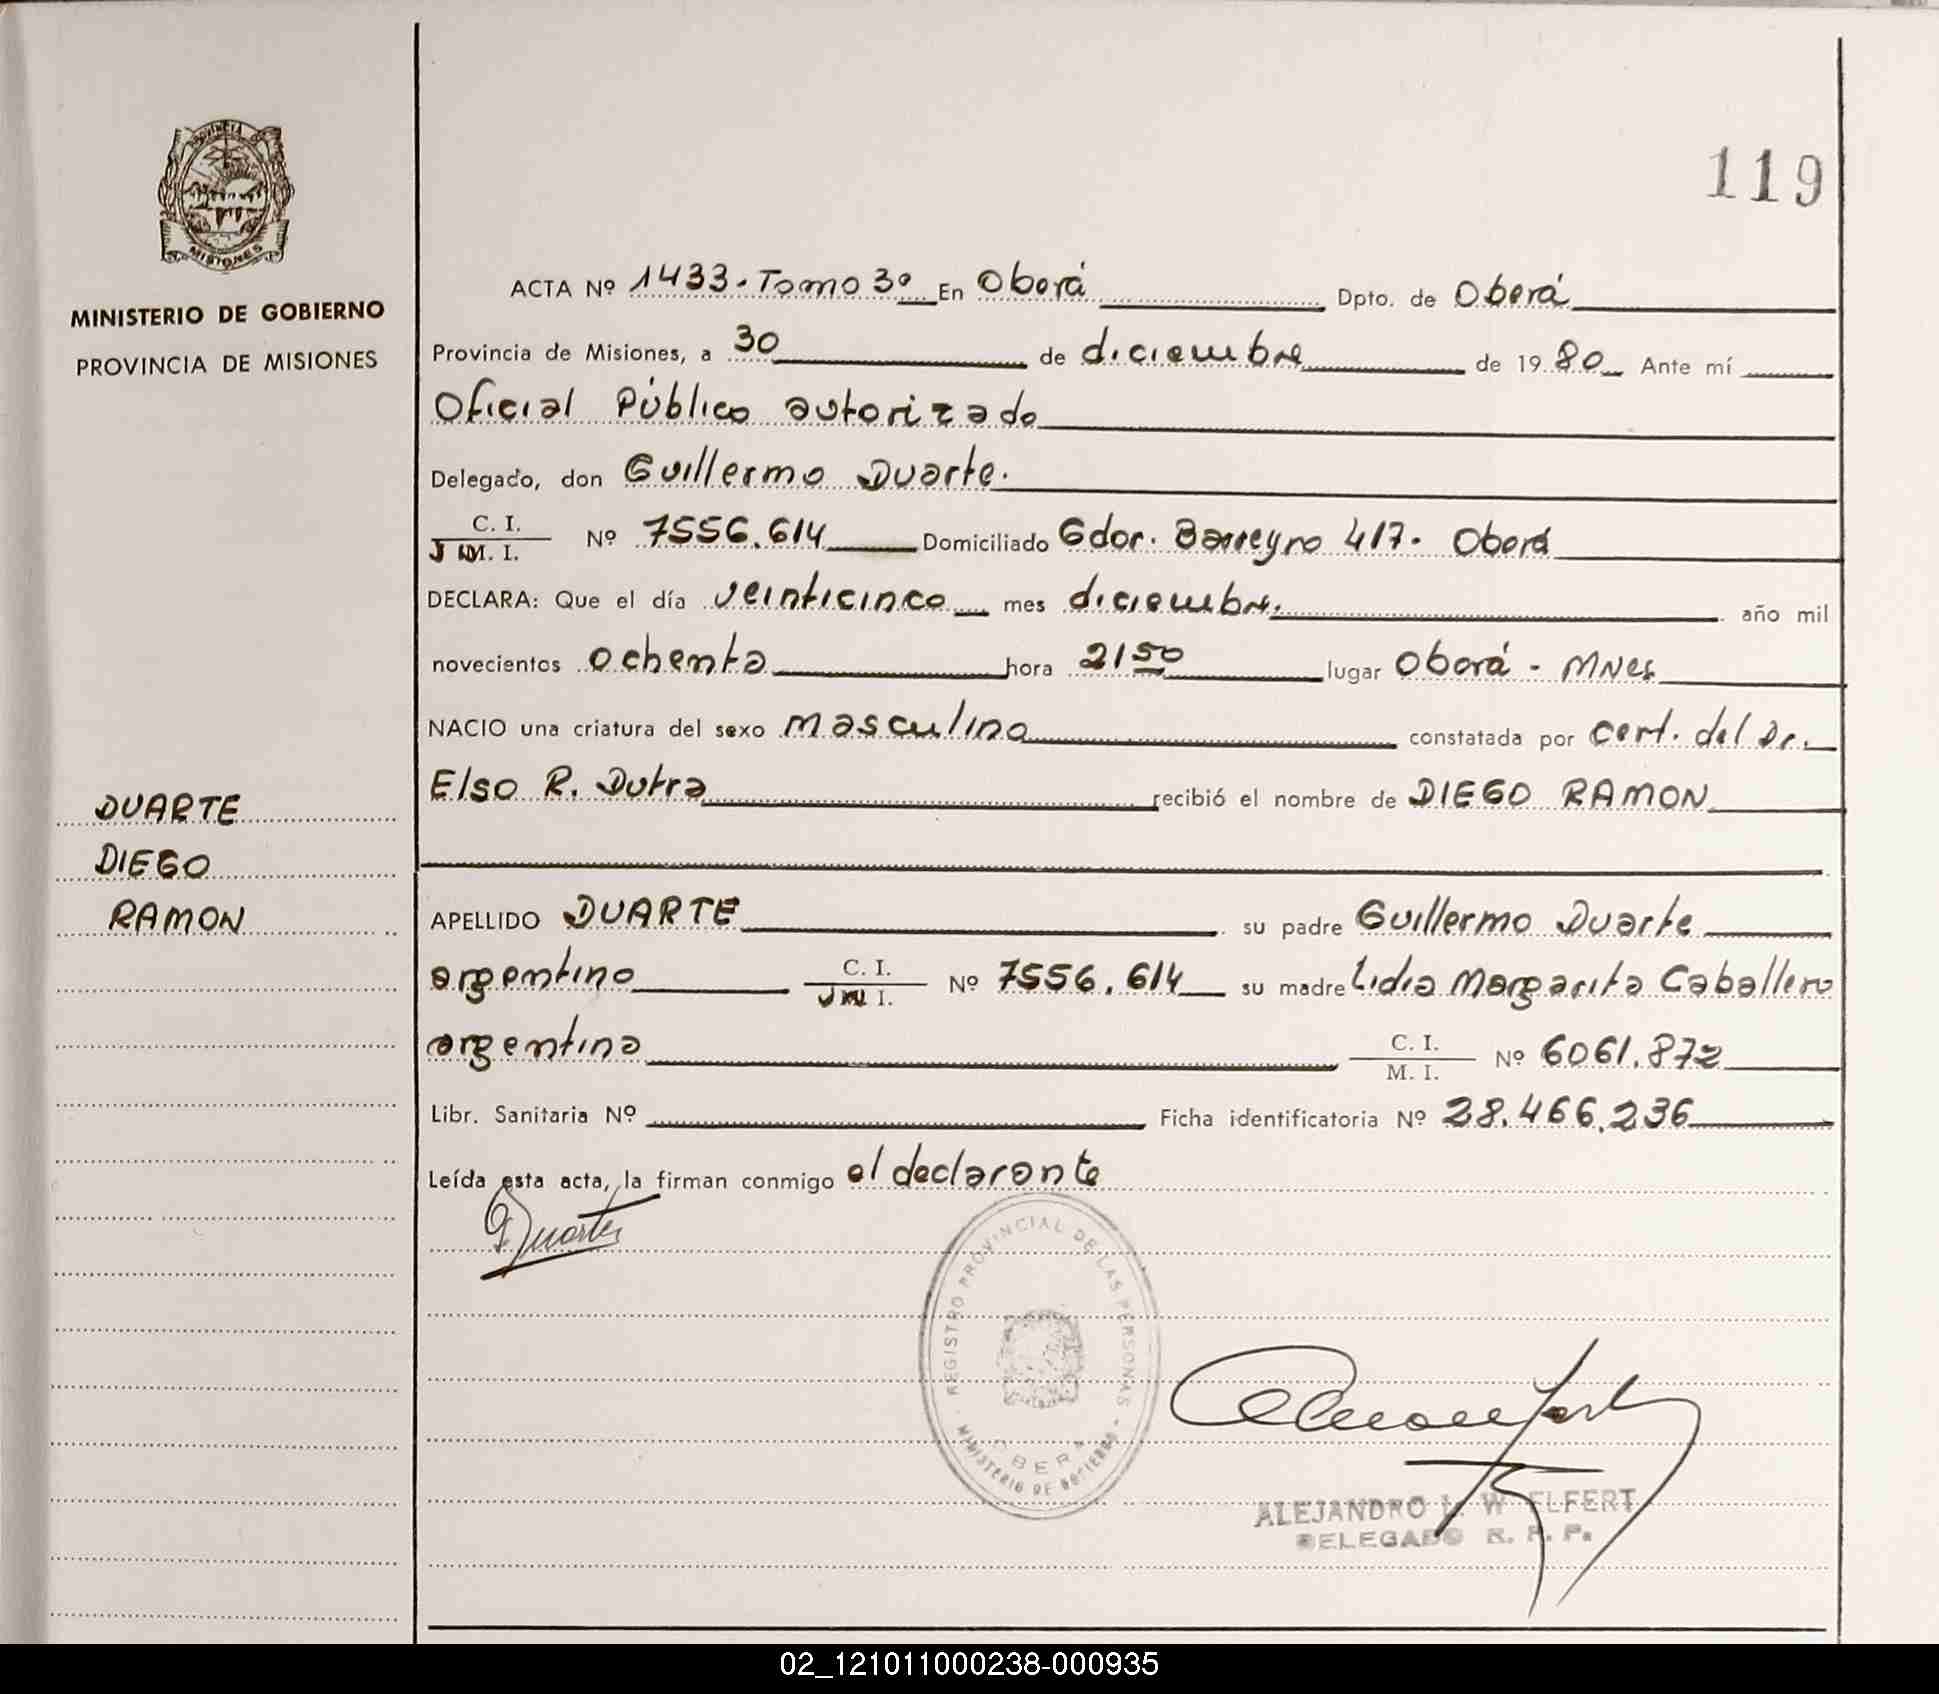 119
PROVINCIA DE
MISIONES
MINISTERIO DE GOBIERNO
PROVINCIA DE MISIONES
ACTA Nº 1433. Tomo 3º En Oberá Dpto. de Oberá
Provincia de Misiones, a 30 de diciembre de 1980 Ante mí
Oficial Público autorizado
Delegado, don Guillermo Duarte.
C. I.
M. I. Nº 7556.614 Domiciliado Gdor. Barreyro 417. Oberá
DECLARA: Que el día veinticinco mes diciembre. año mil
novecientos ochenta hora 2150 lugar Oberá - MNes
NACIO una criatura del sexo masculino constatada por cert. del Dr.
Elso R. Dutra recibió el nombre de DIEGO RAMON
DUARTE
DIEGO
RAMON
APELLIDO DUARTE su padre Guillermo Duarte
argentino C. I. / I. Nº 7556.614 su madre Lidia Margarita Caballero
argentina C. I. / M. I. Nº 6061.872
Libr. Sanitaria Nº Ficha identificatoria Nº 28.466.236
Leída esta acta, la firman conmigo el declarante
G. Duarte
REGISTRO PROVINCIAL DE LAS PERSONAS
OBERA
MINISTERIO DE GOBIERNO
ALEJANDRO L. W ELFERT
DELEGADO R. P. P.
02_121011000238-000935